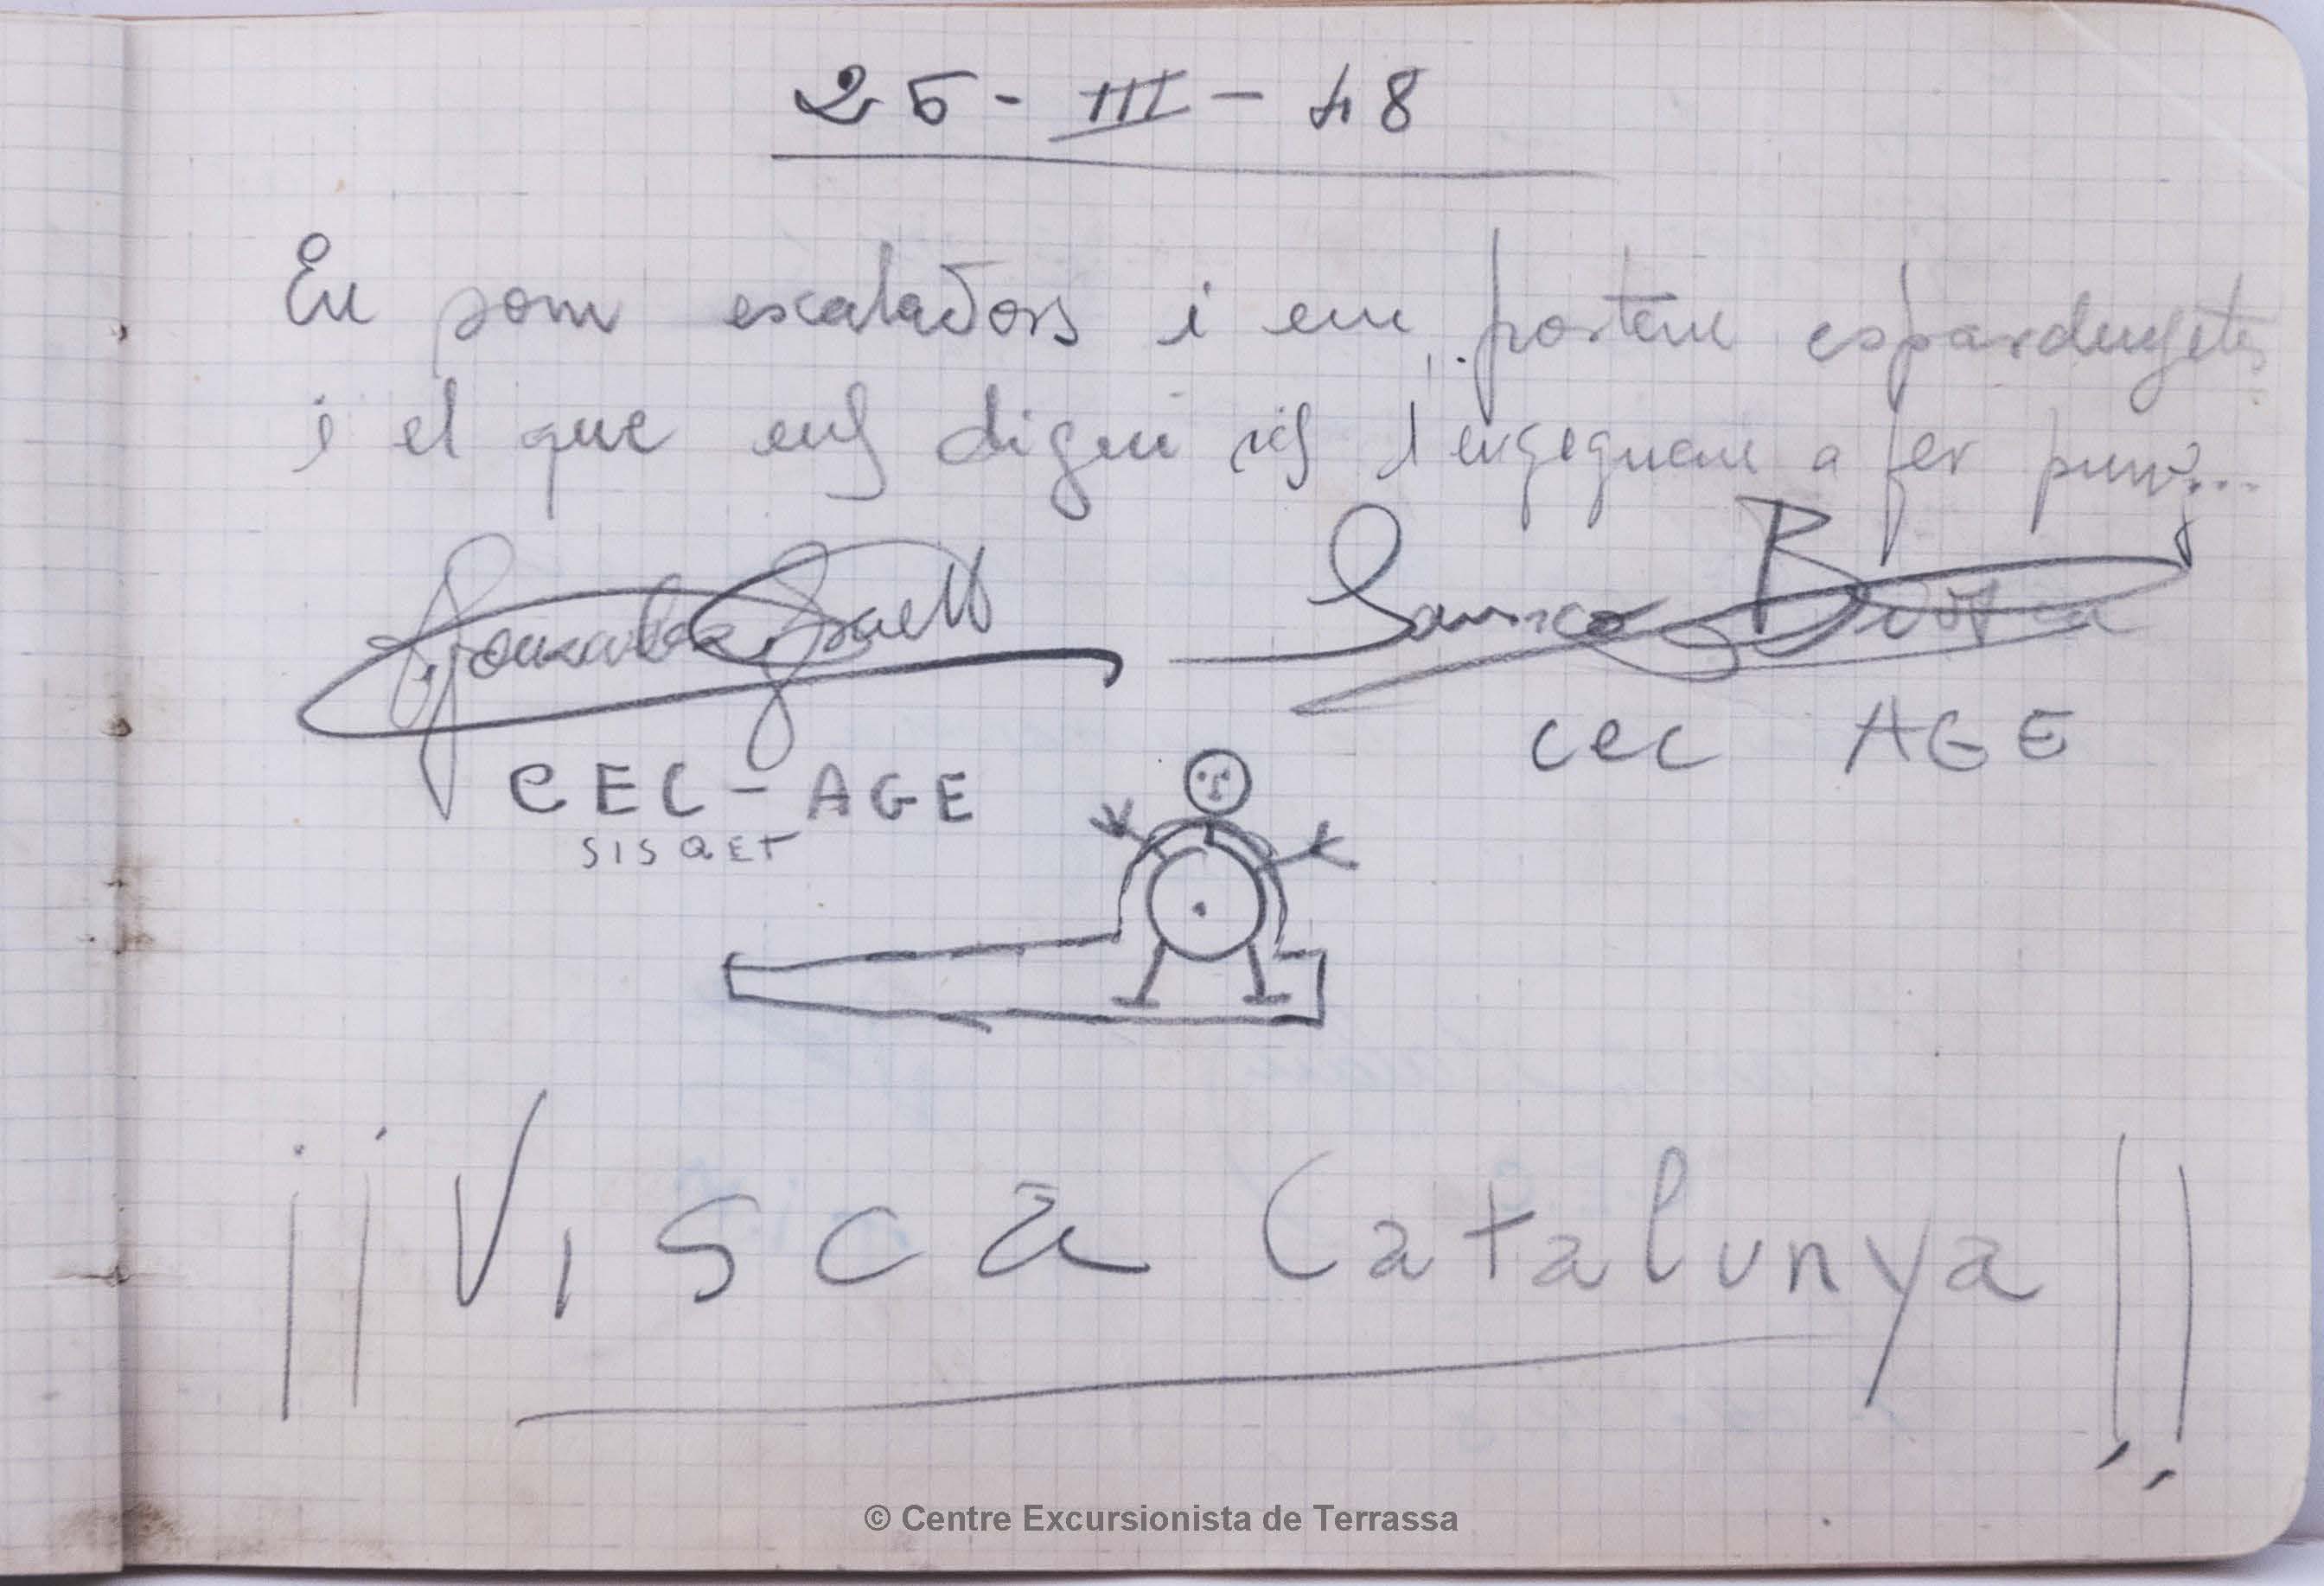 25-III-48
En som escaladors i en portem espardenyetes
i el que ens digui res l'engeguem a fer puny...
CEC AGE
CEC-AGE
SISQET
¡¡Visca Catalunya!!
© Centre Excursionista de Terrassa